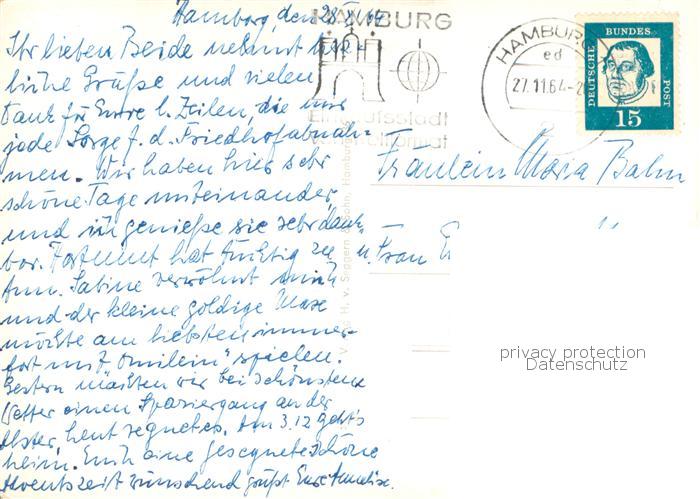 Hamburg, den 28.X.64
Ihr lieben Beide nehmt herz-
liche Grüße und vielen
Dank für Eure l. Zeilen, die uns
jede Sorge f. d. Friedhof abnah-
men. Wir haben hier sehr
schöne Tage miteinander,
und ich genieße sie sehr dank-
bar. hat tüchtig zu
tun. Sabine verwöhnt mich
und der kleine goldige
möchte am liebsten immer-
fort mit "Omilein" spielen.
Gestern machten wir bei schönstem
Wetter einen Spaziergang an der
Alster, heut regnet es. Am 3.12 geht's
heim. Euch eine gesegnete schöne
Adventszeit wünschend grüßt Eure
HAMBURG
HAMBURG
ed
27.11.64-2
2
DEUTSCHE BUNDESPOST
15
Fräulein Maria Bahn
u. Frau
H. v. Seggern & Sohn, Hamburg
privacy protection
Datenschutz